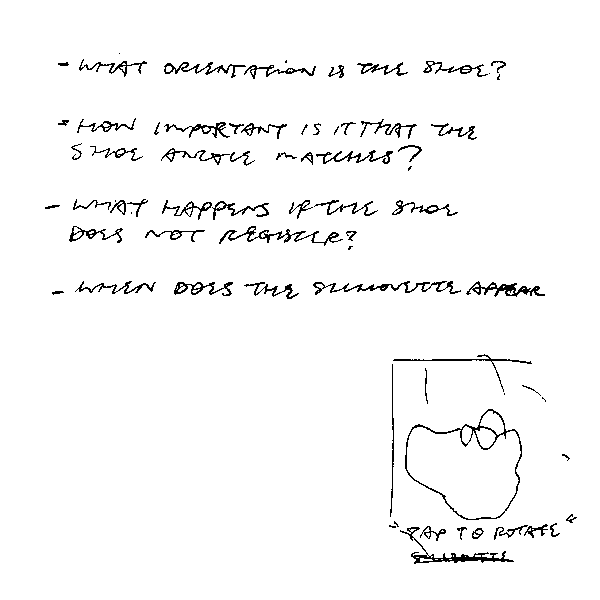 - WHAT ORIENTATION IS THE SHOE?
- HOW IMPORTANT IS IT THAT THE
SHOE ANGLE MATCHES?
- WHAT HAPPENS IF THE SHOE
DOES NOT REGISTER?
- WHEN DOES THE SILHOUETTE APPEAR
"TAP TO ROTATE"